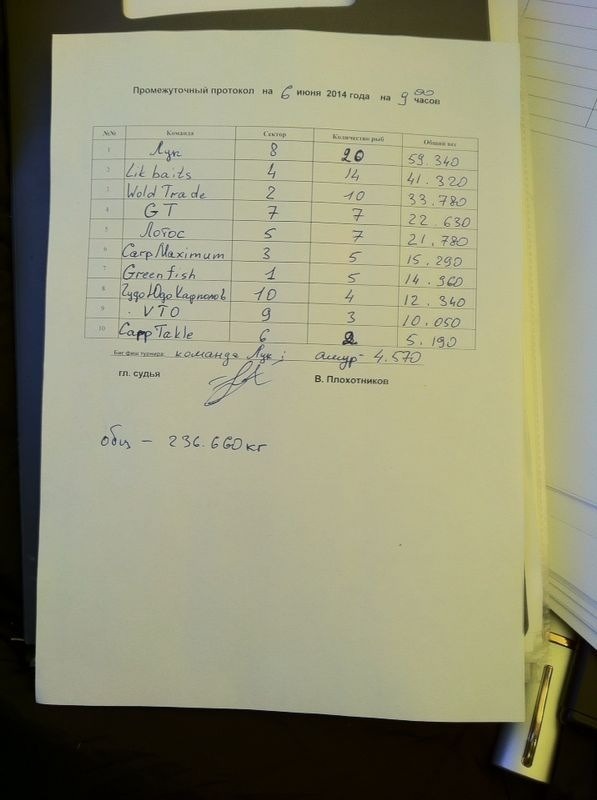 Промежуточный протокол на 6 июня 2014 года на 9 00 часов
№№ Команда Сектор Количество рыб Общий вес
1 Лук 8 20 59.340
2 Lik baits 4 14 41.320
3 Wold Trade 2 10 33.780
4 GT 7 7 22.630
5 Лотос 5 7 21.780
6 CarpMaximum 3 5 15.290
7 Greenfish 1 5 14.960
8 ЧудоЮдоКарполов 10 4 12.340
9 VTO 9 3 10.050
10 CappTakle 6 2 5.190
Биг фиш турнира: команда Лук; амур - 4.570
гл. судья В. Плохотников
общ - 236.660кг